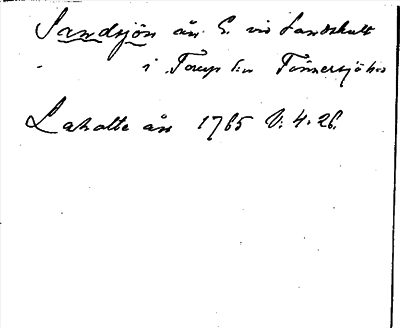 Sandsjön än S. vid Sandhult
i Torup s:n Tönnersjö hd
Laholte än 1765 V: 4. 26.